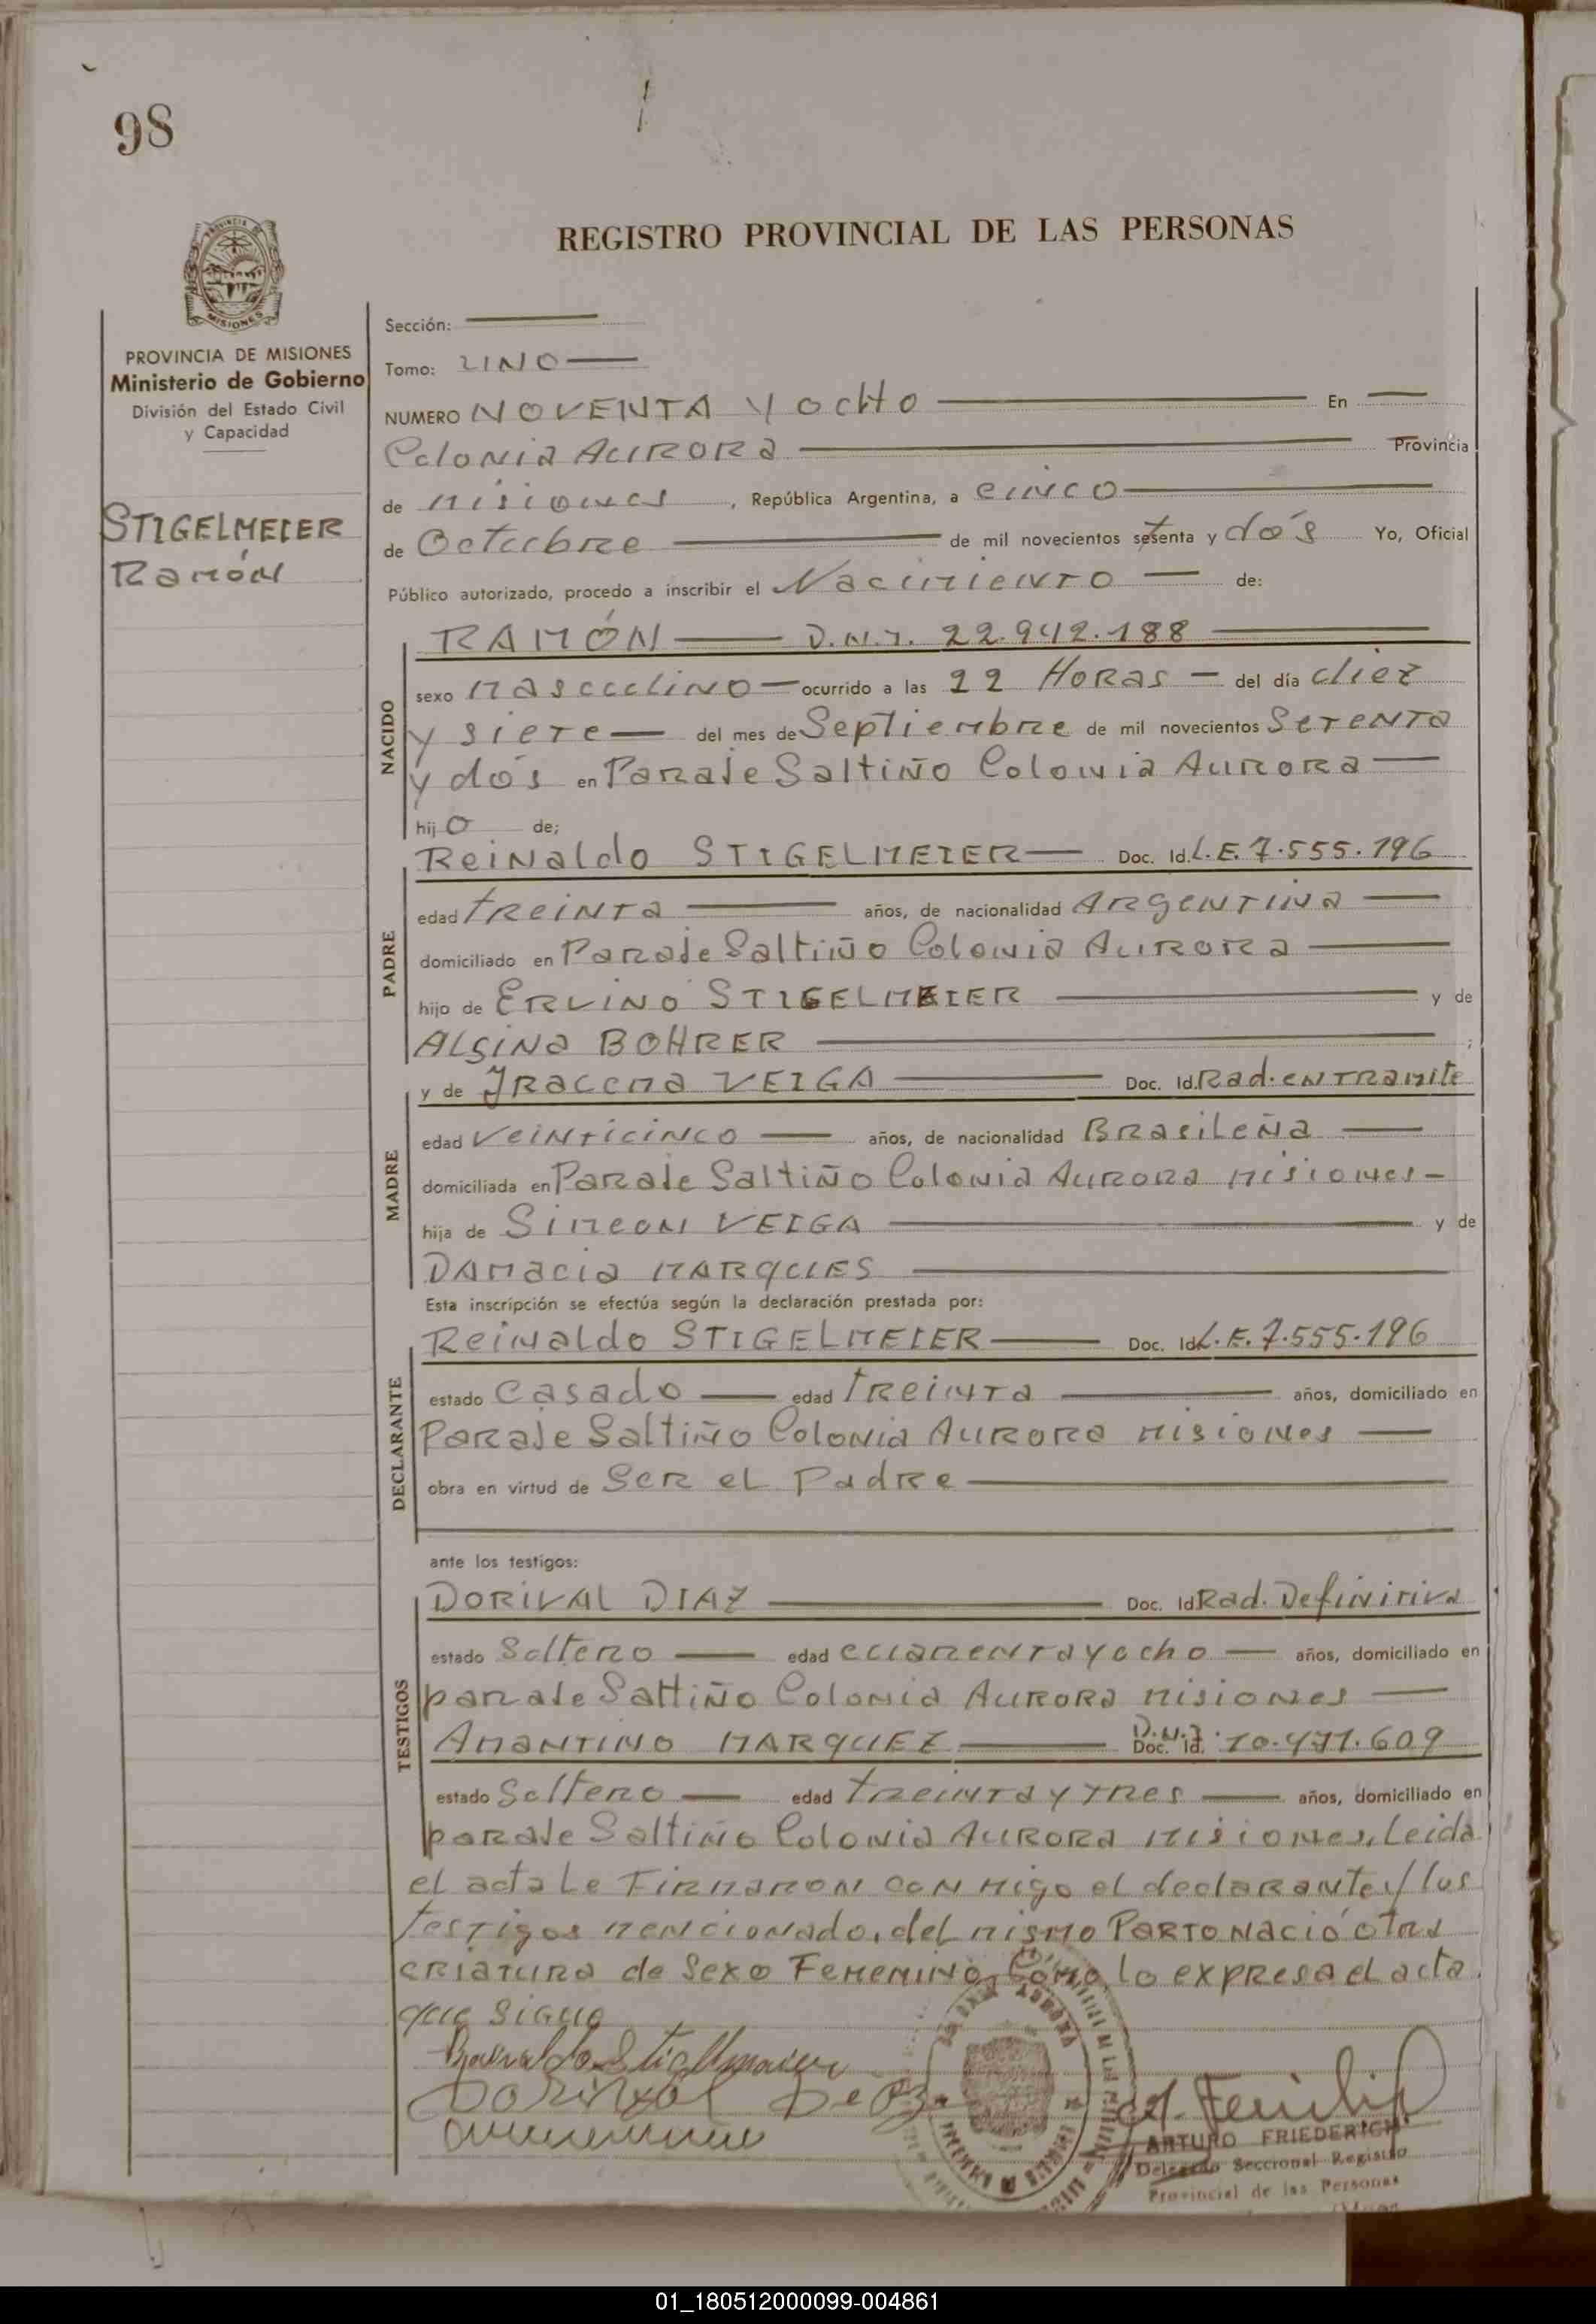 98
REGISTRO PROVINCIAL DE LAS PERSONAS
MISIONES
PROVINCIA DE MISIONES
Ministerio de Gobierno
División del Estado Civil
y Capacidad
STIGELMEIER
Ramón
Sección:
Tomo: UNO
NUMERO NOVENTA Y OCHO En
Colonia AURORA Provincia
de Misiones, República Argentina, a cinco
de Octubre de mil novecientos setenta y dós Yo, Oficial
Público autorizado, procedo a inscribir el Nacimiento de:
NACIDO
RAMÓN D.N.I. 22.942.188
sexo masculino ocurrido a las 22 HORAS del día diez
y siete del mes de Septiembre de mil novecientos SETENTA
y dós en Paraje Saltiño Colonia AURORA
hijo de;
PADRE
Reinaldo STIGELMEIER Doc. Id. L.E. 7.555.196
edad treinta años, de nacionalidad ARgentina
domiciliado en Paraje Saltiño Colonia AURORA
hijo de ERVINO STIGELMEIER y de
ALSINA BOHRER ;
MADRE
y de IRACEMA VEIGA Doc. Id. Rad. en TRamite
edad veinticinco años, de nacionalidad BRasileña
domiciliada en Paraje Saltiño Colonia AURORA misiones-
hija de Simeon VEIGA y de
DAMACIA MARQUES
Esta inscripción se efectúa según la declaración prestada por:
DECLARANTE
Reinaldo STIGELMEIER Doc. Id. L.E. 7.555.196
estado casado edad treinta años, domiciliado en
Paraje Saltiño Colonia AURORA misiones
obra en virtud de Ser el Padre
ante los testigos:
TESTIGOS
DORIVAL DIAZ Doc. Id. Rad. Definitiva
estado Soltero edad cuarenta y ocho años, domiciliado en
paraje Saltiño Colonia AURORA misiones
AMANTINO MARQUEZ D.N.I. Doc. Id. 10.471.609
estado Soltero edad treinta y tres años, domiciliado en
paraje Saltiño Colonia AURORA misiones, Leida
el acta Le Firmaron con migo el declarante y los
testigos mencionado, del mismo Parto nació otra
criatura de Sexo Femenino, Como lo expresa el acta
que sigue
Dorival
ARTURO FRIEDERICH
Delegado Seccional Registro
Provincial de las Personas
01_180512000099-004861